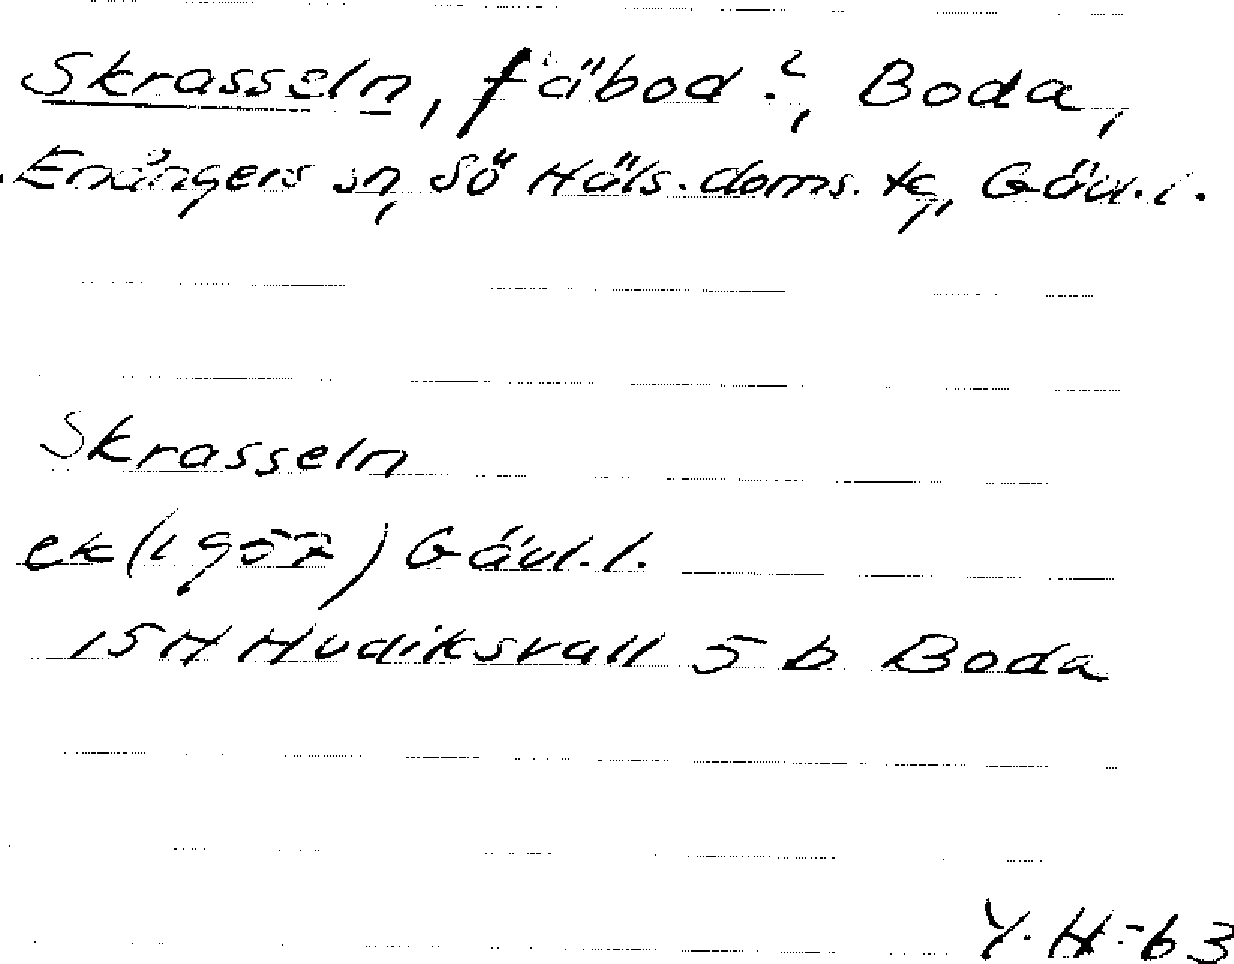 Skrasseln, fäbod?, Boda,
Enångers sn, Sö Häls. doms. tg, Gävl. l.
Skrasseln
ek (1957) Gävl. l.
15H Hudiksvall 5 b Boda
Y. H-63